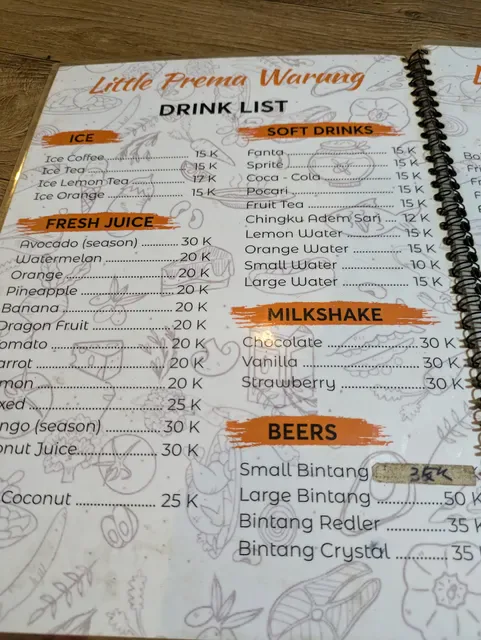 Little Prema Warung
DRINK LIST
ICE
Ice Coffee 15 K
Ice Tea 15 K
Ice Lemon Tea 17 K
Ice Orange 15 K
FRESH JUICE
Avocado (season) 30 K
Watermelon 20 K
Orange 20 K
Pineapple 20 K
Banana 20 K
Dragon Fruit 20 K
omato 20 K
arrot 20 K
mon 20 K
xed 25 K
ngo (season) 30 K
onut Juice 30 K
Coconut 25 K
SOFT DRINKS
Fanta 15 K
Sprite 15 K
Coca - Cola 15 K
Pocari 15 K
Fruit Tea 15 K
Chingku Adem Sari 12 K
Lemon Water 15 K
Orange Water 15 K
Small Water 10 K
Large Water 15 K
MILKSHAKE
Chocolate 30 K
Vanilla 30 K
Strawberry 30 K
BEERS
Small Bintang 35K
Large Bintang 50 K
Bintang Redler 35 K
Bintang Crystal 35